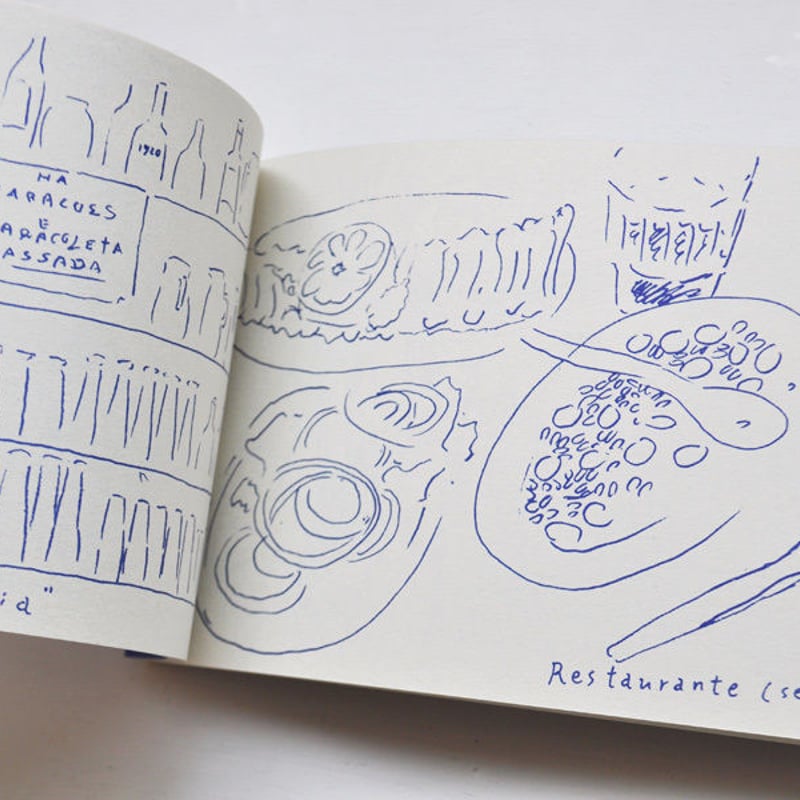 1920
HA
ARACOES
E
ARACOLETA
ASSADA
id"
Restaurante (se